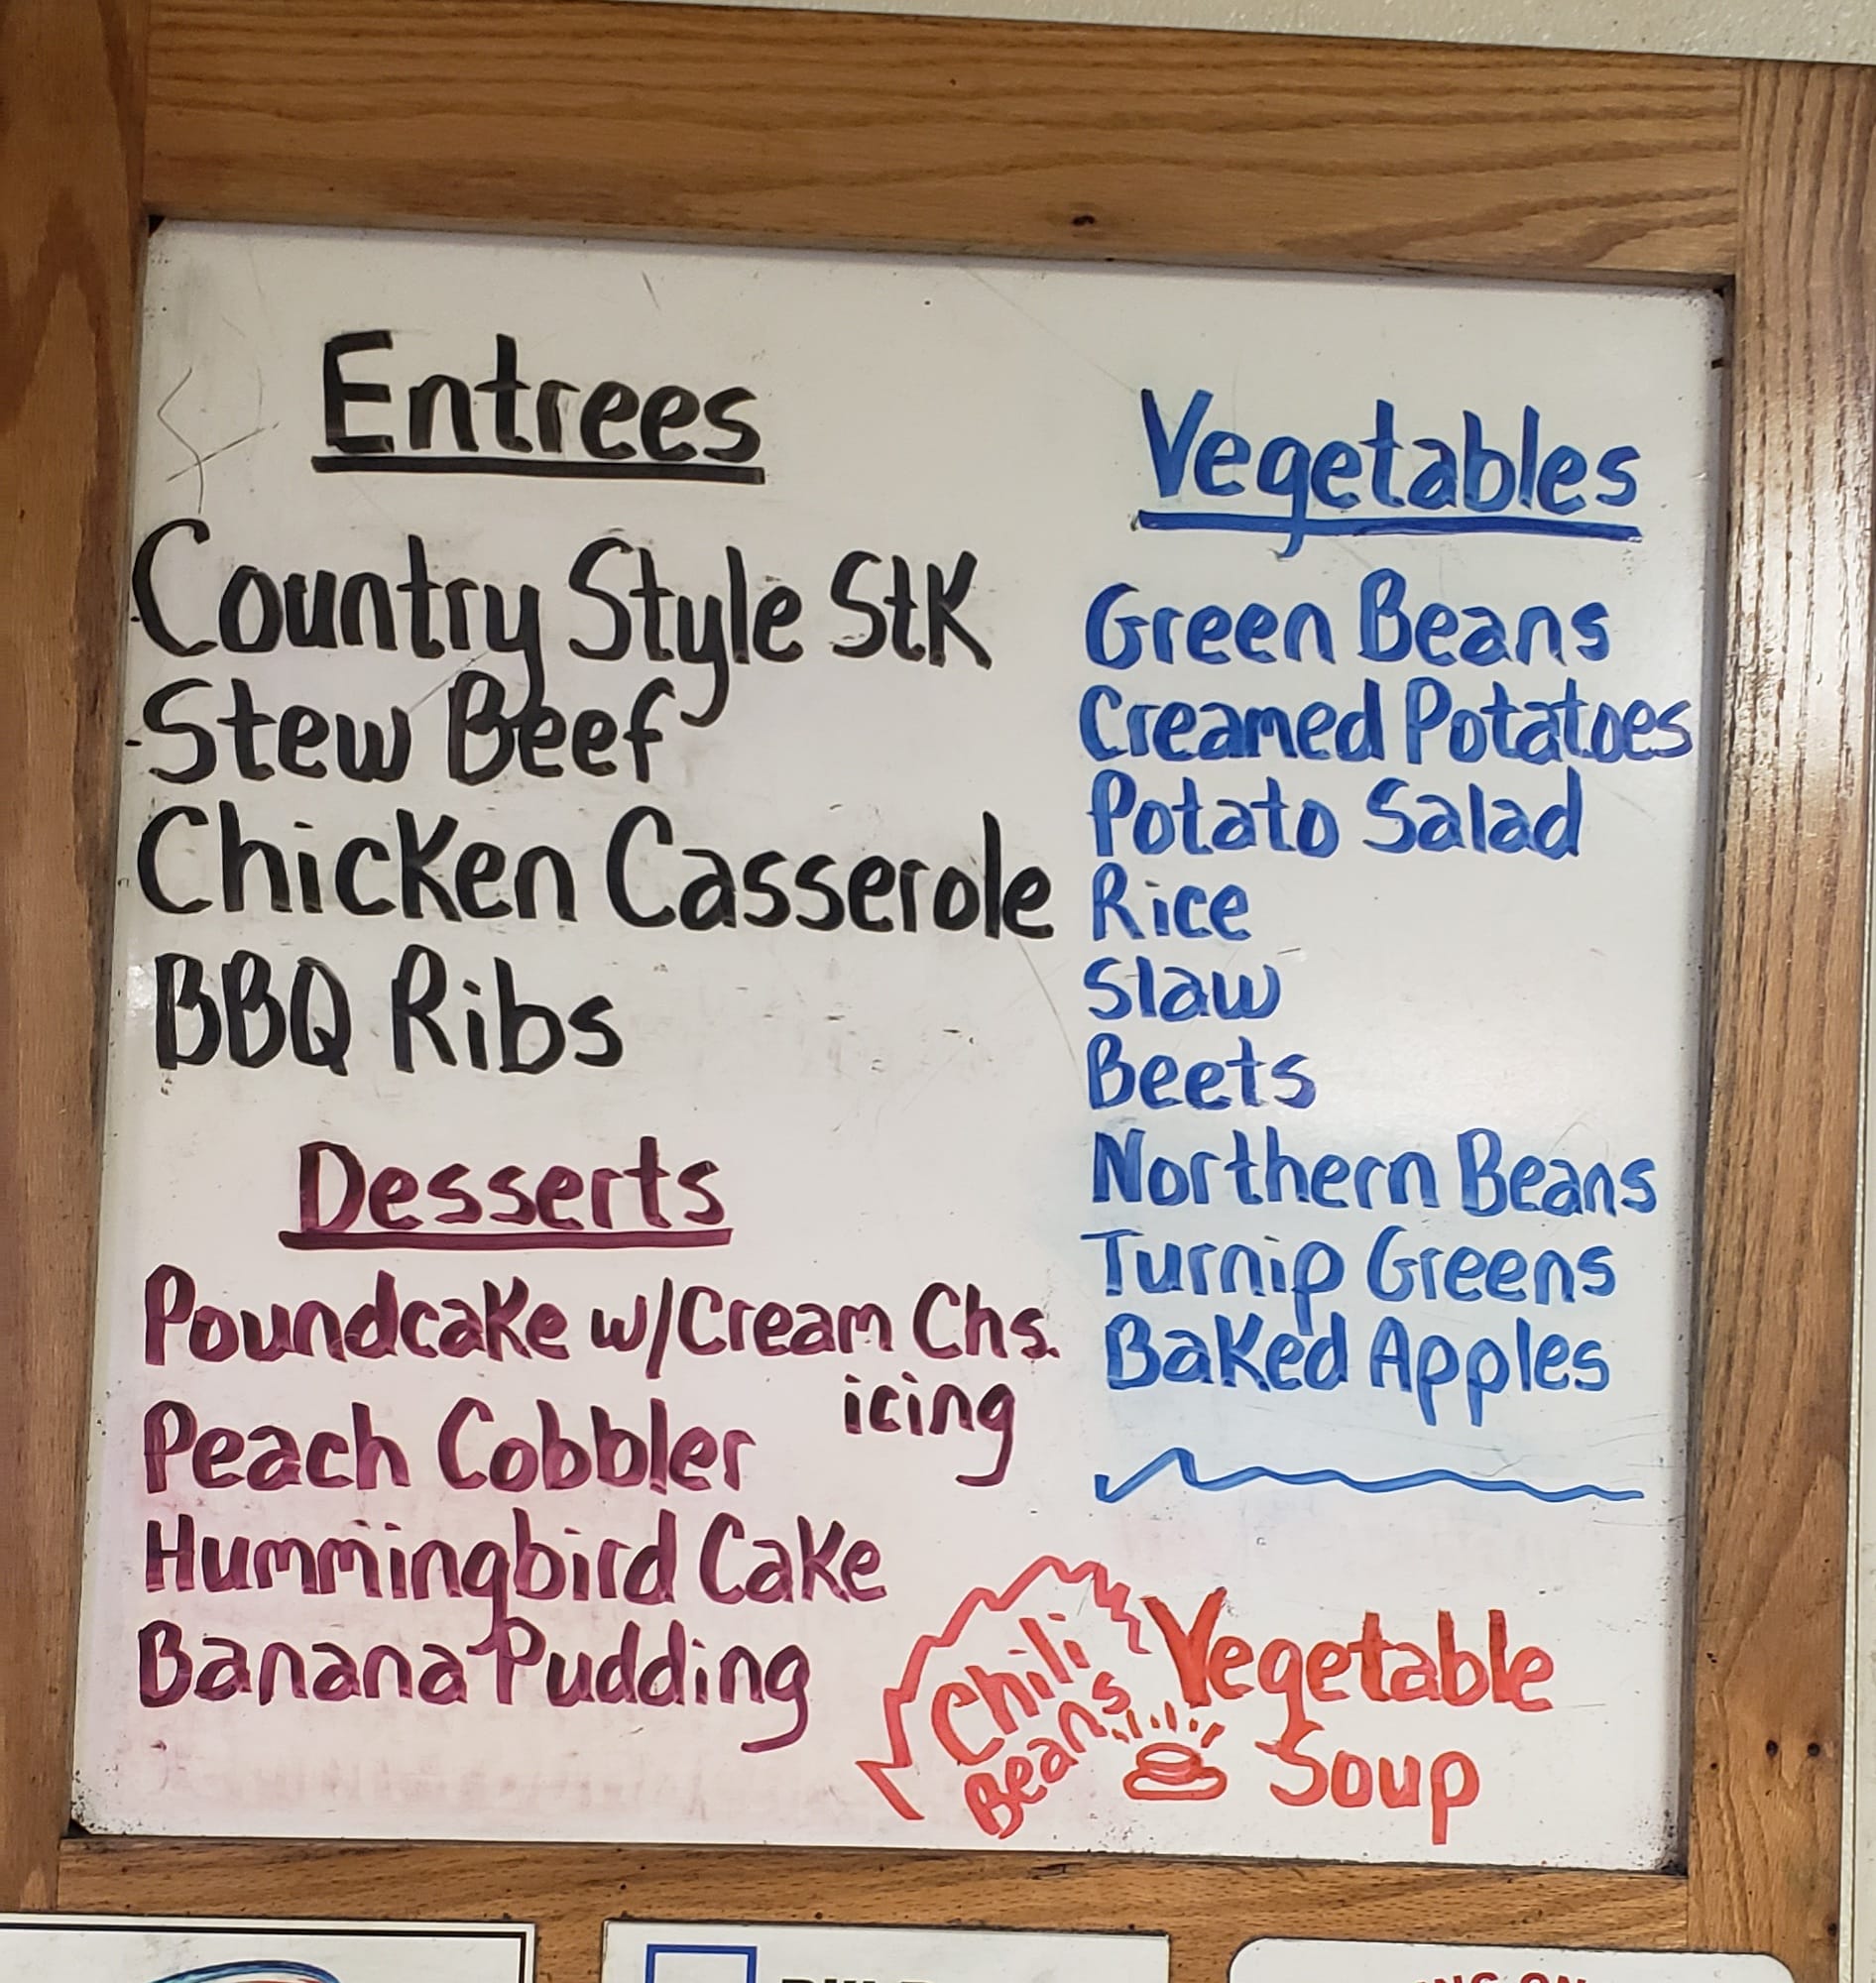 Entrees
Country Style StK
Stew Beef
Chicken Casserole
BBQ Ribs
Desserts
Poundcake w/Cream Chs.
icing
Peach Cobbler
Hummingbird Cake
Banana Pudding
Vegetables
Green Beans
Creamed Potatoes
Potato Salad
Rice
Slaw
Beets
Northern Beans
Turnip Greens
Baked Apples
Chili
Beans
Vegetable
Soup